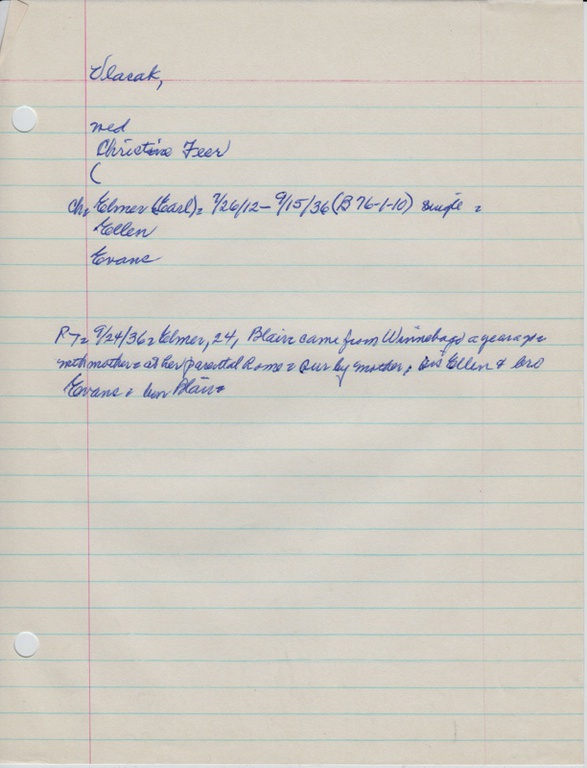 Vlasak,
wed
Christine Feer
(
ch, Elmer (Earl) = 7/26/12 - 9/15/36 (B 76-1-10) single =
Ellen
Evans
PT = 9/24/36 = Elmer, 24, Blair = came from Winnebago a year ago =
with mother = at her parental home = sur by mother, sis Ellen & bro
Evans = bur Blair =